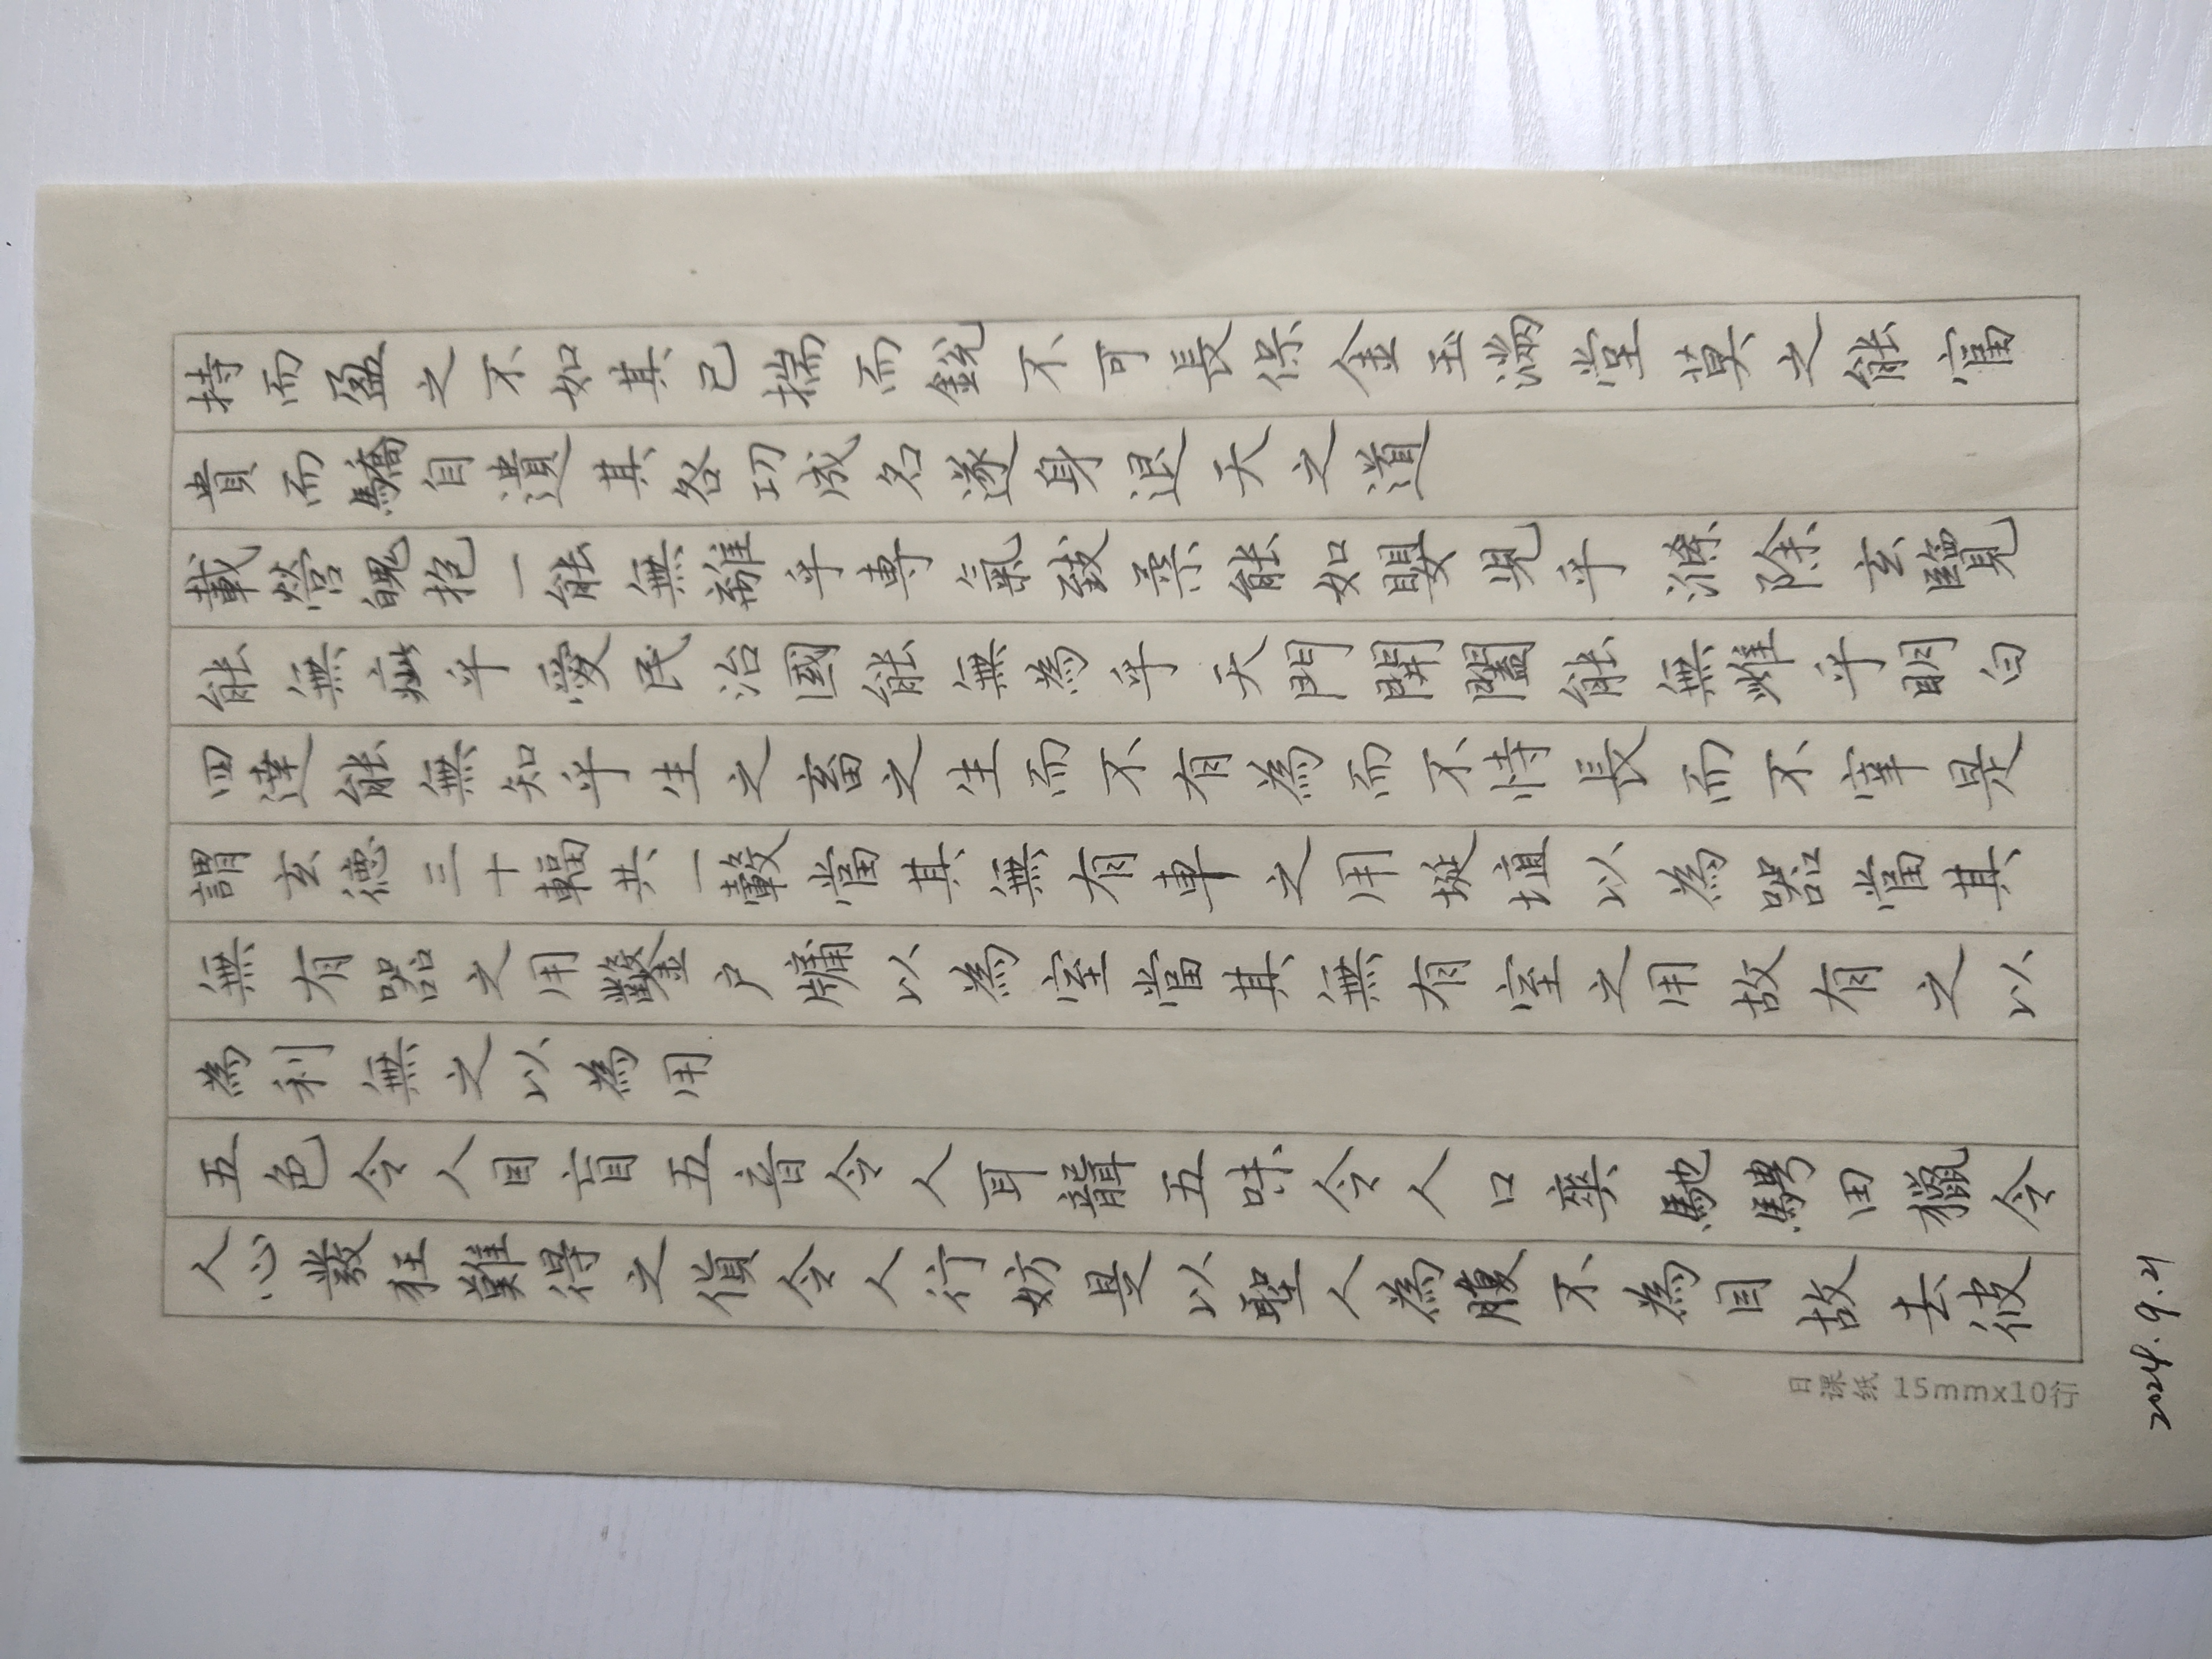 持而盈之不如其已揣而銳不可長保金玉滿堂莫之能富
貴而驕自遺其咎功成名遂身退天之道
載營魄抱一能無離乎專氣致柔能如嬰兒乎滌除玄覽
能無疵乎愛民治國能無為乎天門開闔能無雌乎明白
四達能無知乎生之畜之生而不有為而不恃長而不宰是
謂玄德三十輻共一轂當其無有車之用埏埴以為器當其
無有器之用鑿户牖以為室當其無有室之用故有之以
為利無之以為用
五色令人目盲五音令人耳聾五味令人口爽馳騁田獵令
人心發狂難得之貨令人行妨是以聖人為腹不為目故去彼
日课纸 15mmx10行
2024.9.21